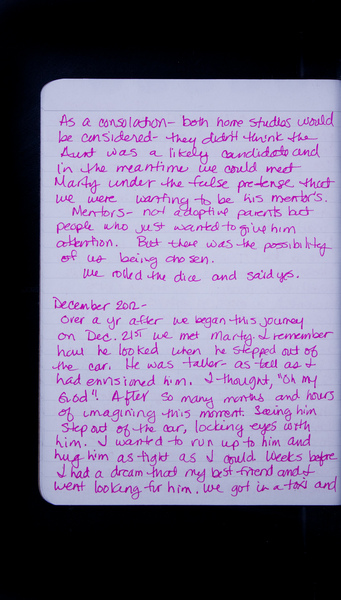 As a consolation- both home studies would
be considered- they didn't think the
Aunt was a likely candidate and
in the meantime we could meet
Marty under the false pretense that
we were wanting to be his mentors.
Mentors- not adoptive parents but
people who just wanted to give him
attention. But there was the possibility
of us being chosen.
We rolled the dice and said yes.
December 2012-
Over a yr after we began this journey
on Dec. 21st we met Marty. I remember
how he looked when he stepped out of
the car. He was taller- as tall as I
had envisioned him. I thought, "Oh my
God"! After so many months and hours
of imagining this moment. Seeing him
step out of the car, locking eyes with
him. I wanted to run up to him and
hug him as tight as I could. Weeks before
I had a dream that my best friend and I
went looking for him. We got in a taxi and